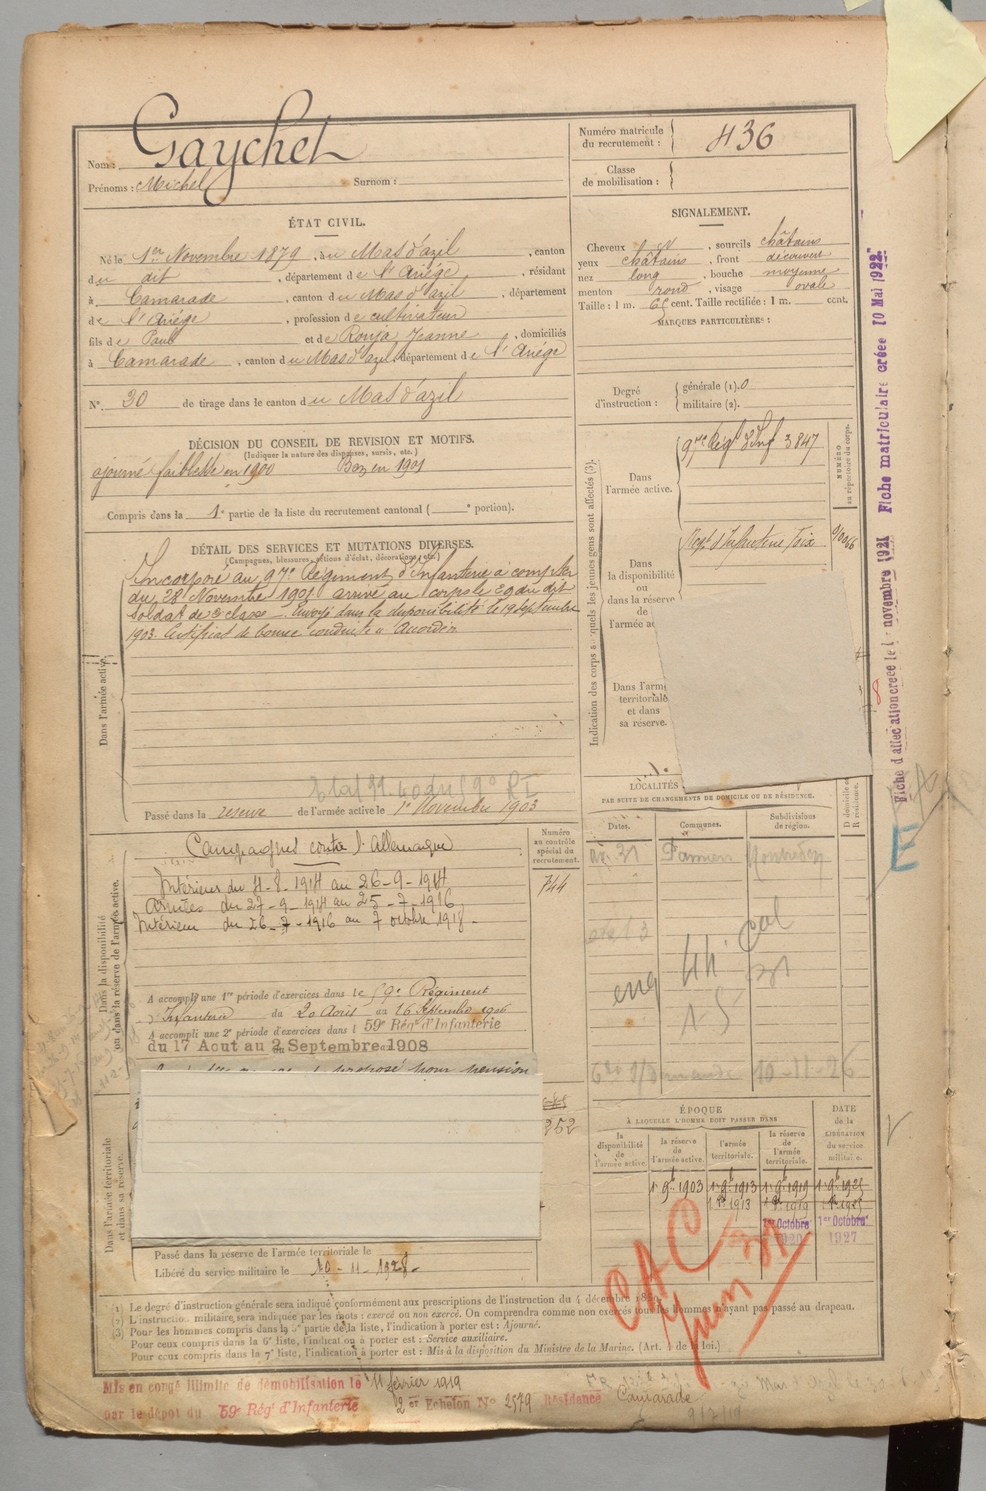 Nom : Gaychet
Prénoms : Michel Surnom :
Numéro matricule du recrutement : 436
Classe de mobilisation :
ÉTAT CIVIL.
Né le 1er Novembre 1879, au Mas d'azil, canton
du dit, département de l'Ariége, résidant
à Camarade, canton du Mas d'azil, département
de l'Ariége, profession de cultivateur
fils de Paul et de Rouja Jeanne, domiciliés
à Camarade, canton du Mas d'azil, département de l'Ariége
N° 30 de tirage dans le canton du Mas d'azil
SIGNALEMENT.
Cheveux et, sourcils châtains
yeux châtains, front découvert
nez long, bouche moyenne
menton rond, visage ovale
Taille : 1 m. 65 cent. Taille rectifiée : 1 m. cent.
MARQUES PARTICULIÈRES :
Degré d'instruction : générale (1). 0
militaire (2).
DÉCISION DU CONSEIL DE REVISION ET MOTIFS.
(Indiquer la nature des dispenses, sursis, etc.)
ajourné faiblesse en 1900 Bon en 1901
Compris dans la 1e partie de la liste du recrutement cantonal ( e portion).
DÉTAIL DES SERVICES ET MUTATIONS DIVERSES.
(Campagnes, blessures, actions d'éclat, décorations, etc.)
Dans l'armée active.
Incorporé au 97e Régiment d'Infanterie à compter
du 28 Novembre 1901 arrivé au corps le 29 du dit
Soldat de 2e classe. Envoyé dans la disponibilité le 19 septembre
1903. Certificat de bonne conduite "Accordé"
Passé dans la reserve de l'armée active le 1er Novembre 1903
Indication des corps auxquels les jeunes gens sont affectés (3).
NUMÉRO au répertoire du corps.
Dans l'armée active.
97e Régt d'Inf 3847
Dans la disponibilité ou dans la réserve de l'armée ac
Régt d'Infanterie Foix
Dans l'arm territoriale et dans sa réserve.
LOCALITÉS
PAR SUITE DE CHANGEMENTS DE DOMICILE OU DE RÉSIDENCE.
Dates. Communes. Subdivisions de région. D domicile R résidence.
Pamiers
Dans la disponibilité ou dans la réserve de l'armée active.
Numéro au contrôle spécial du recrutement.
744
Campagnes contre l'Allemagne
Intérieur du 4-8-1914 au 26-9-1914
Armées du 27-9-1914 au 25-7-1916
Intérieur du 26-7-1916 au 7 octobre 1918
A accompli une 1re période d'exercices dans le 59e Régiment
d'Infanterie du 20 Août au 16 Septembre 1906
A accompli une 2e période d'exercices dans l 59e Régt d'Infanterie
du 17 Aout au 2 Septembre 1908
proposé pour pension
352
Dans l'armée territoriale et dans sa réserve.
Passé dans la réserve de l'armée territoriale le
Libéré du service militaire le 10-11-1928
ÉPOQUE
À LAQUELLE L'HOMME DOIT PASSER DANS
la disponibilité de l'armée active. la réserve de l'armée active. l'armée territoriale. la réserve de l'armée territoriale.
DATE de la LIBÉRATION du service militaire.
1er 9bre 1903 1er 9bre 1913 1er 9bre 1919 1er 9bre 1925
1er Octobre 1er Octobre
1927
CAC
Juin 31
(1) Le degré d'instruction générale sera indiqué conformément aux prescriptions de l'instruction du 4 décembre 1889.
(2) L'instruction militaire sera indiquée par les mots : exercé ou non exercé. On comprendra comme non exercés tous les hommes n'ayant pas passé au drapeau.
(3) Pour les hommes compris dans la 5e partie de la liste, l'indication à porter est : Ajourné.
Pour ceux compris dans la 6e liste, l'indication à porter est : Service auxiliaire.
Pour ceux compris dans la 7e liste, l'indication à porter est : Mis à la disposition du Ministre de la Marine. (Art. 4 de la loi.)
Mis en congé illimité de démobilisation le 11 février 1919
par le dépôt du 59e Régt d'Infanterie 2er Echelon N° 2579 Résidence Camarade
Fiche d'affectation créée le 1 novembre 1921 Fiche matriculaire créée 10 Mai 1922